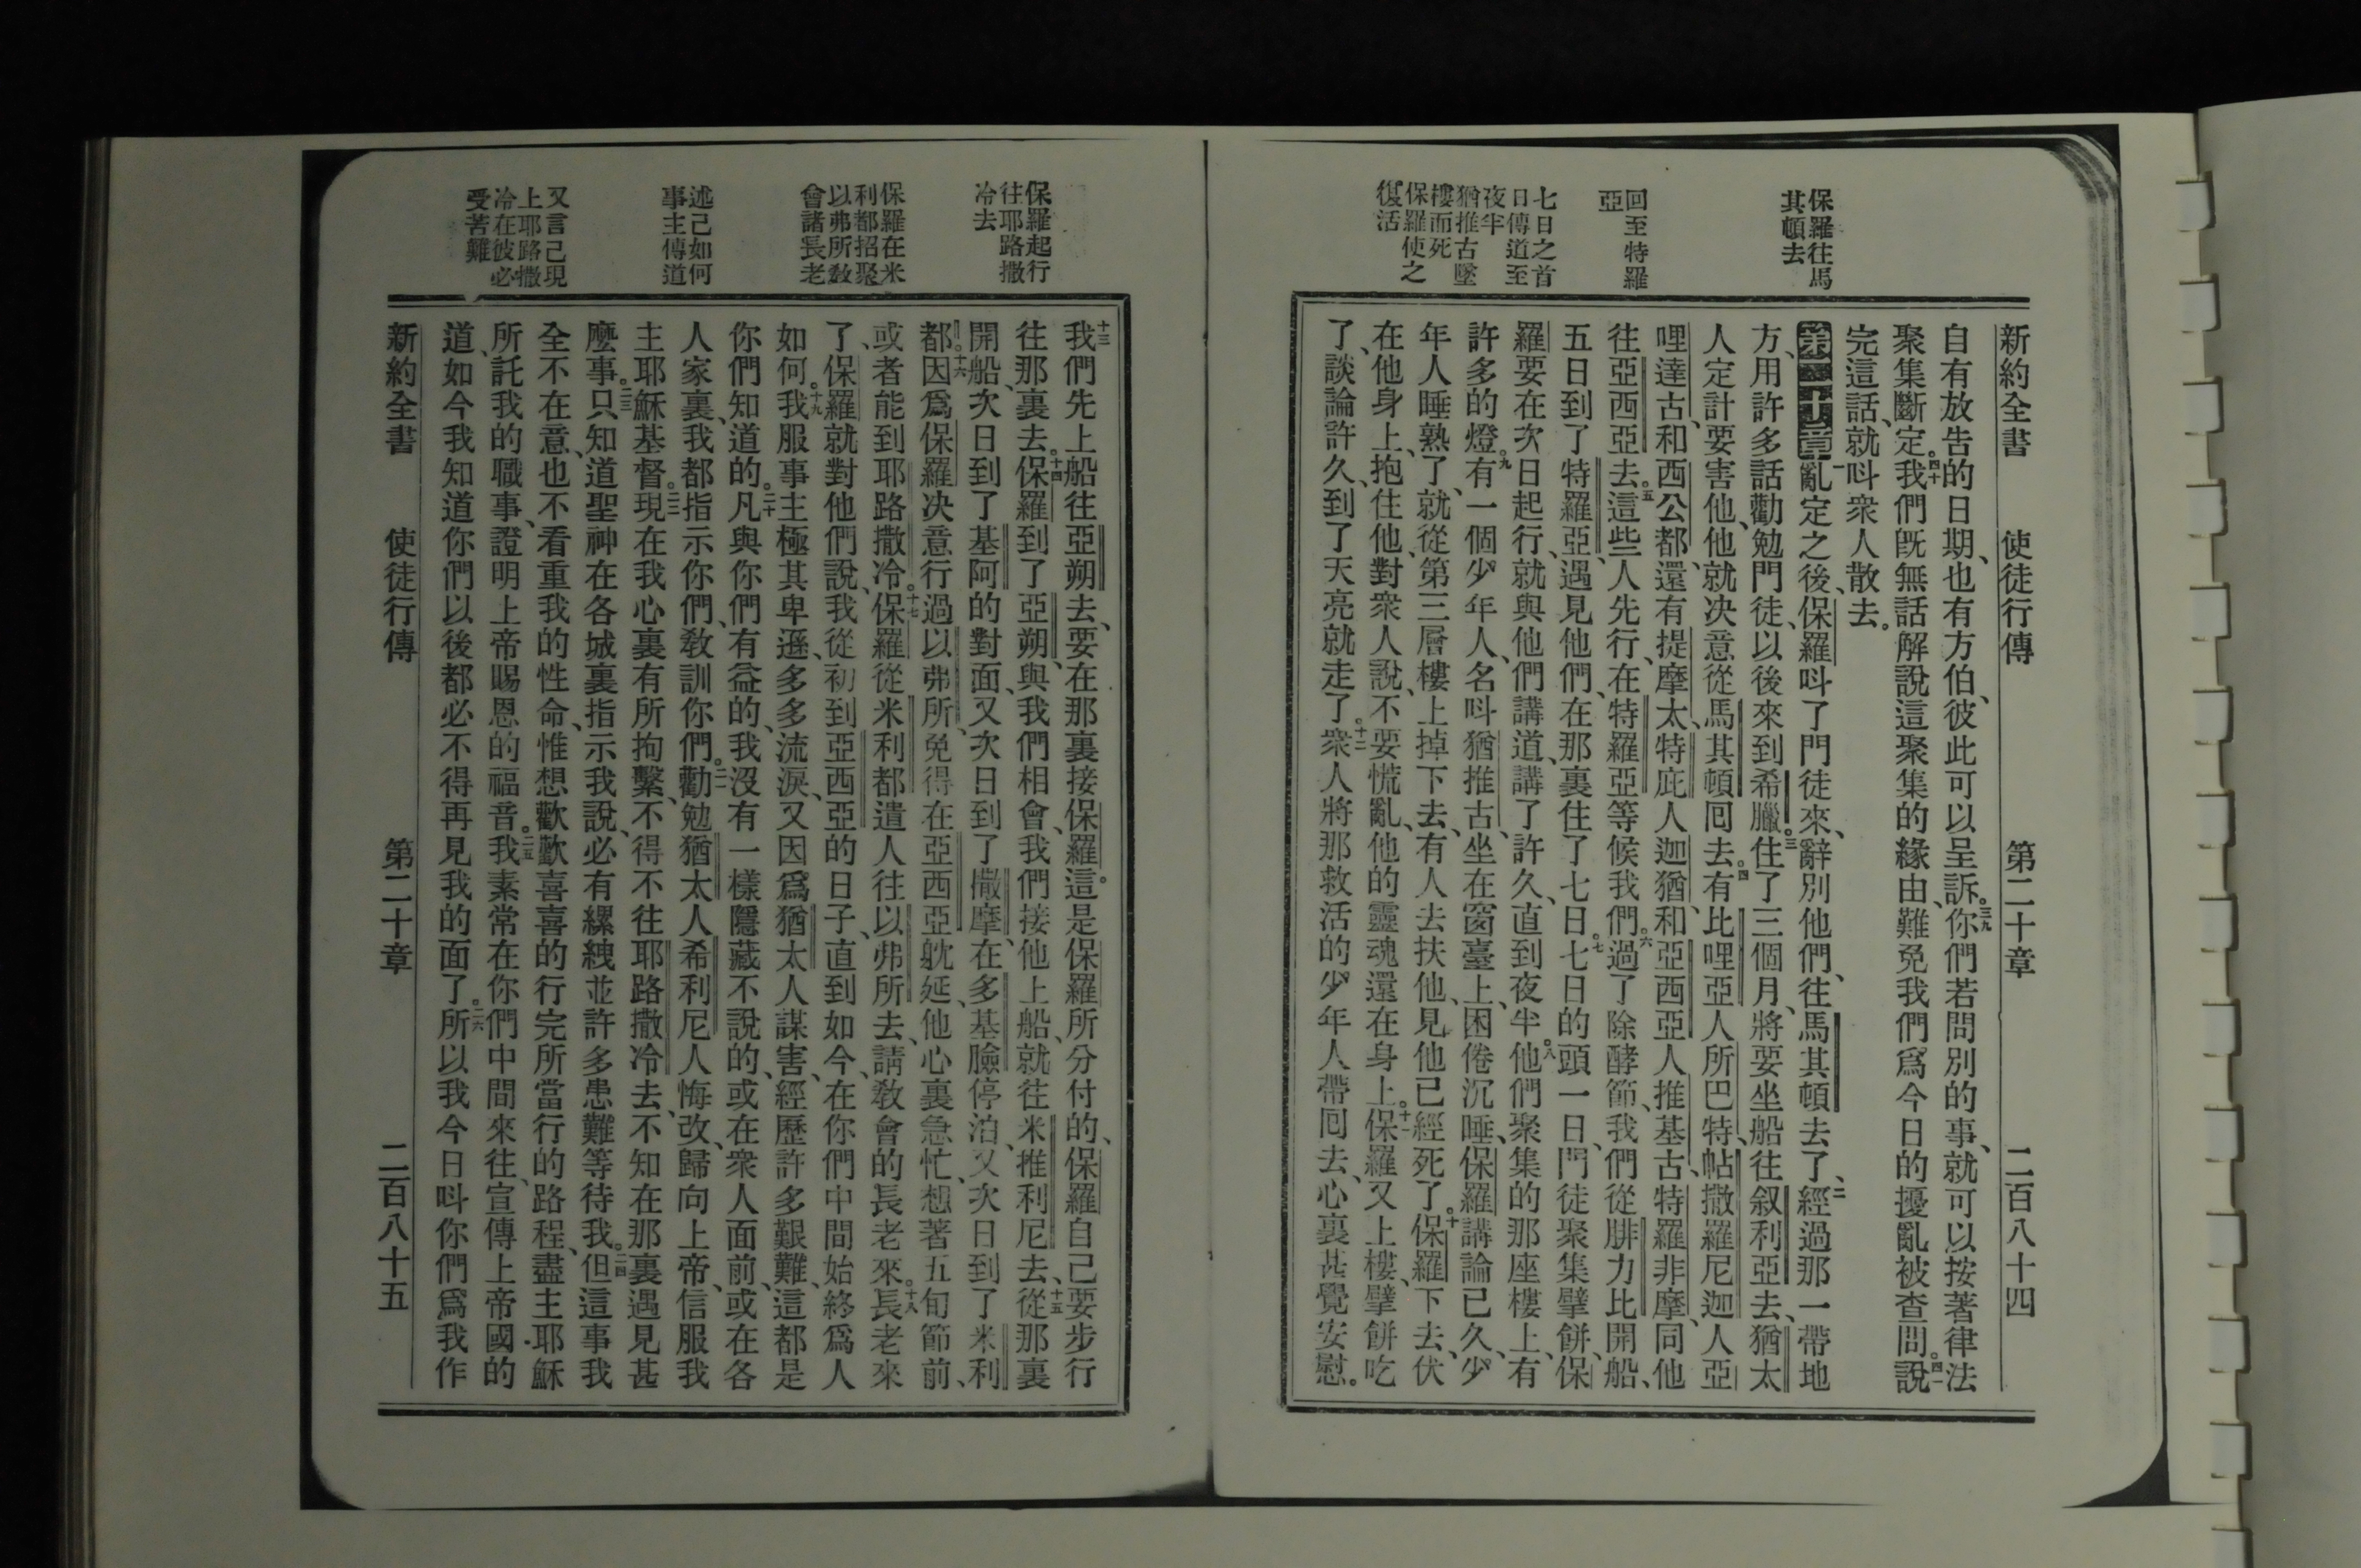 保羅往馬
其頓去
回至特羅
亞
七日之首
日傳道至
夜半
猶推古墜
樓而死
保羅使之
復活
新約全書 使徒行傳 第二十章 二百八十四
自有放告的日期、也有方伯、彼此可以呈訴。三九你們若問別的事、就可以按著律法
聚集斷定。四十我們旣無話解說這聚集的緣由、難免我們爲今日的擾亂被查問。四一說
完這話、就呌衆人散去。
第二十章 一亂定之後、保羅呌了門徒來、辭別他們、往馬其頓去了、二經過那一帶地
方、用許多話勸勉門徒、以後來到希臘。三住了三個月、將要坐船往叙利亞去、猶太
人定計要害他、他就決意從馬其頓囘去。四有比哩亞人所巴特、帖撒羅尼迦人亞
哩達古、和西公都、還有提摩太、特庇人迦猶、和亞西亞人推基古、特羅非摩、同他
往亞西亞去。五這些人先行、在特羅亞等候我們。六過了除酵節、我們從腓力比開船、
五日到了特羅亞、遇見他們、在那裏住了七日。七七日的頭一日、門徒聚集擘餅、保
羅要在次日起行、就與他們講道、講了許久、直到夜半。八他們聚集的那座樓上、有
許多的燈。九有一個少年人、名呌猶推古、坐在窗臺上、困倦沉睡、保羅講論已久、少
年人睡熟了、就從第三層樓上掉下去、有人去扶他、見他已經死了。十保羅下去、伏
在他身上、抱住他、對衆人說、不要慌亂、他的靈魂還在身上。十一保羅又上樓、擘餅吃
了、談論許久、到了天亮就走了。十二衆人將那救活的少年人帶囘去、心裏甚覺安慰。
保羅起行
往耶路撒
冷去
保羅在米
利都招聚
以弗所敎
會諸長老
述己如何
事主傳道
又言己現
上耶路撒
冷在彼必
受苦難
十三我們先上船往亞朔去、要在那裏接保羅。這是保羅所分付的、保羅自己要步行
往那裏去。十四保羅到了亞朔、與我們相會、我們接他上船、就往米推利尼去、十五從那裏
開船、次日到了基阿的對面、又次日到了撒摩、在多基臉停泊、又次日到了米利
都。十六因爲保羅決意行過以弗所、免得在亞西亞躭延、他心裏急忙、想著五旬節前、
或者能到耶路撒冷。十七保羅從米利都遣人往以弗所去、請敎會的長老來。十八長老來
了、保羅就對他們說、我從初到亞西亞的日子、直到如今、在你們中間始終爲人
如何。十九我服事主極其卑遜、多多流淚、又因爲猶太人謀害、經歷許多艱難、這都是
你們知道的。二十凡與你們有益的、我沒有一樣隱藏不說的、或在衆人面前、或在各
人家裏、我都指示你們、敎訓你們。二一勸勉猶太人希利尼人悔改、歸向上帝、信服我
主耶穌基督。二二現在我心裏有所拘繫、不得不往耶路撒冷去、不知在那裏遇見甚
麼事。二三只知道聖神在各城裏指示我說、必有縲絏並許多患難等待我。二四但這事我
全不在意、也不看重我的性命、惟想歡歡喜喜的行完所當行的路程、盡主耶穌
所託我的職事、證明上帝賜恩的福音。二五我素常在你們中間來往、宣傳上帝國的
道、如今我知道你們以後都必不得再見我的面了。二六所以我今日呌你們爲我作
新約全書 使徒行傳 第二十章 二百八十五